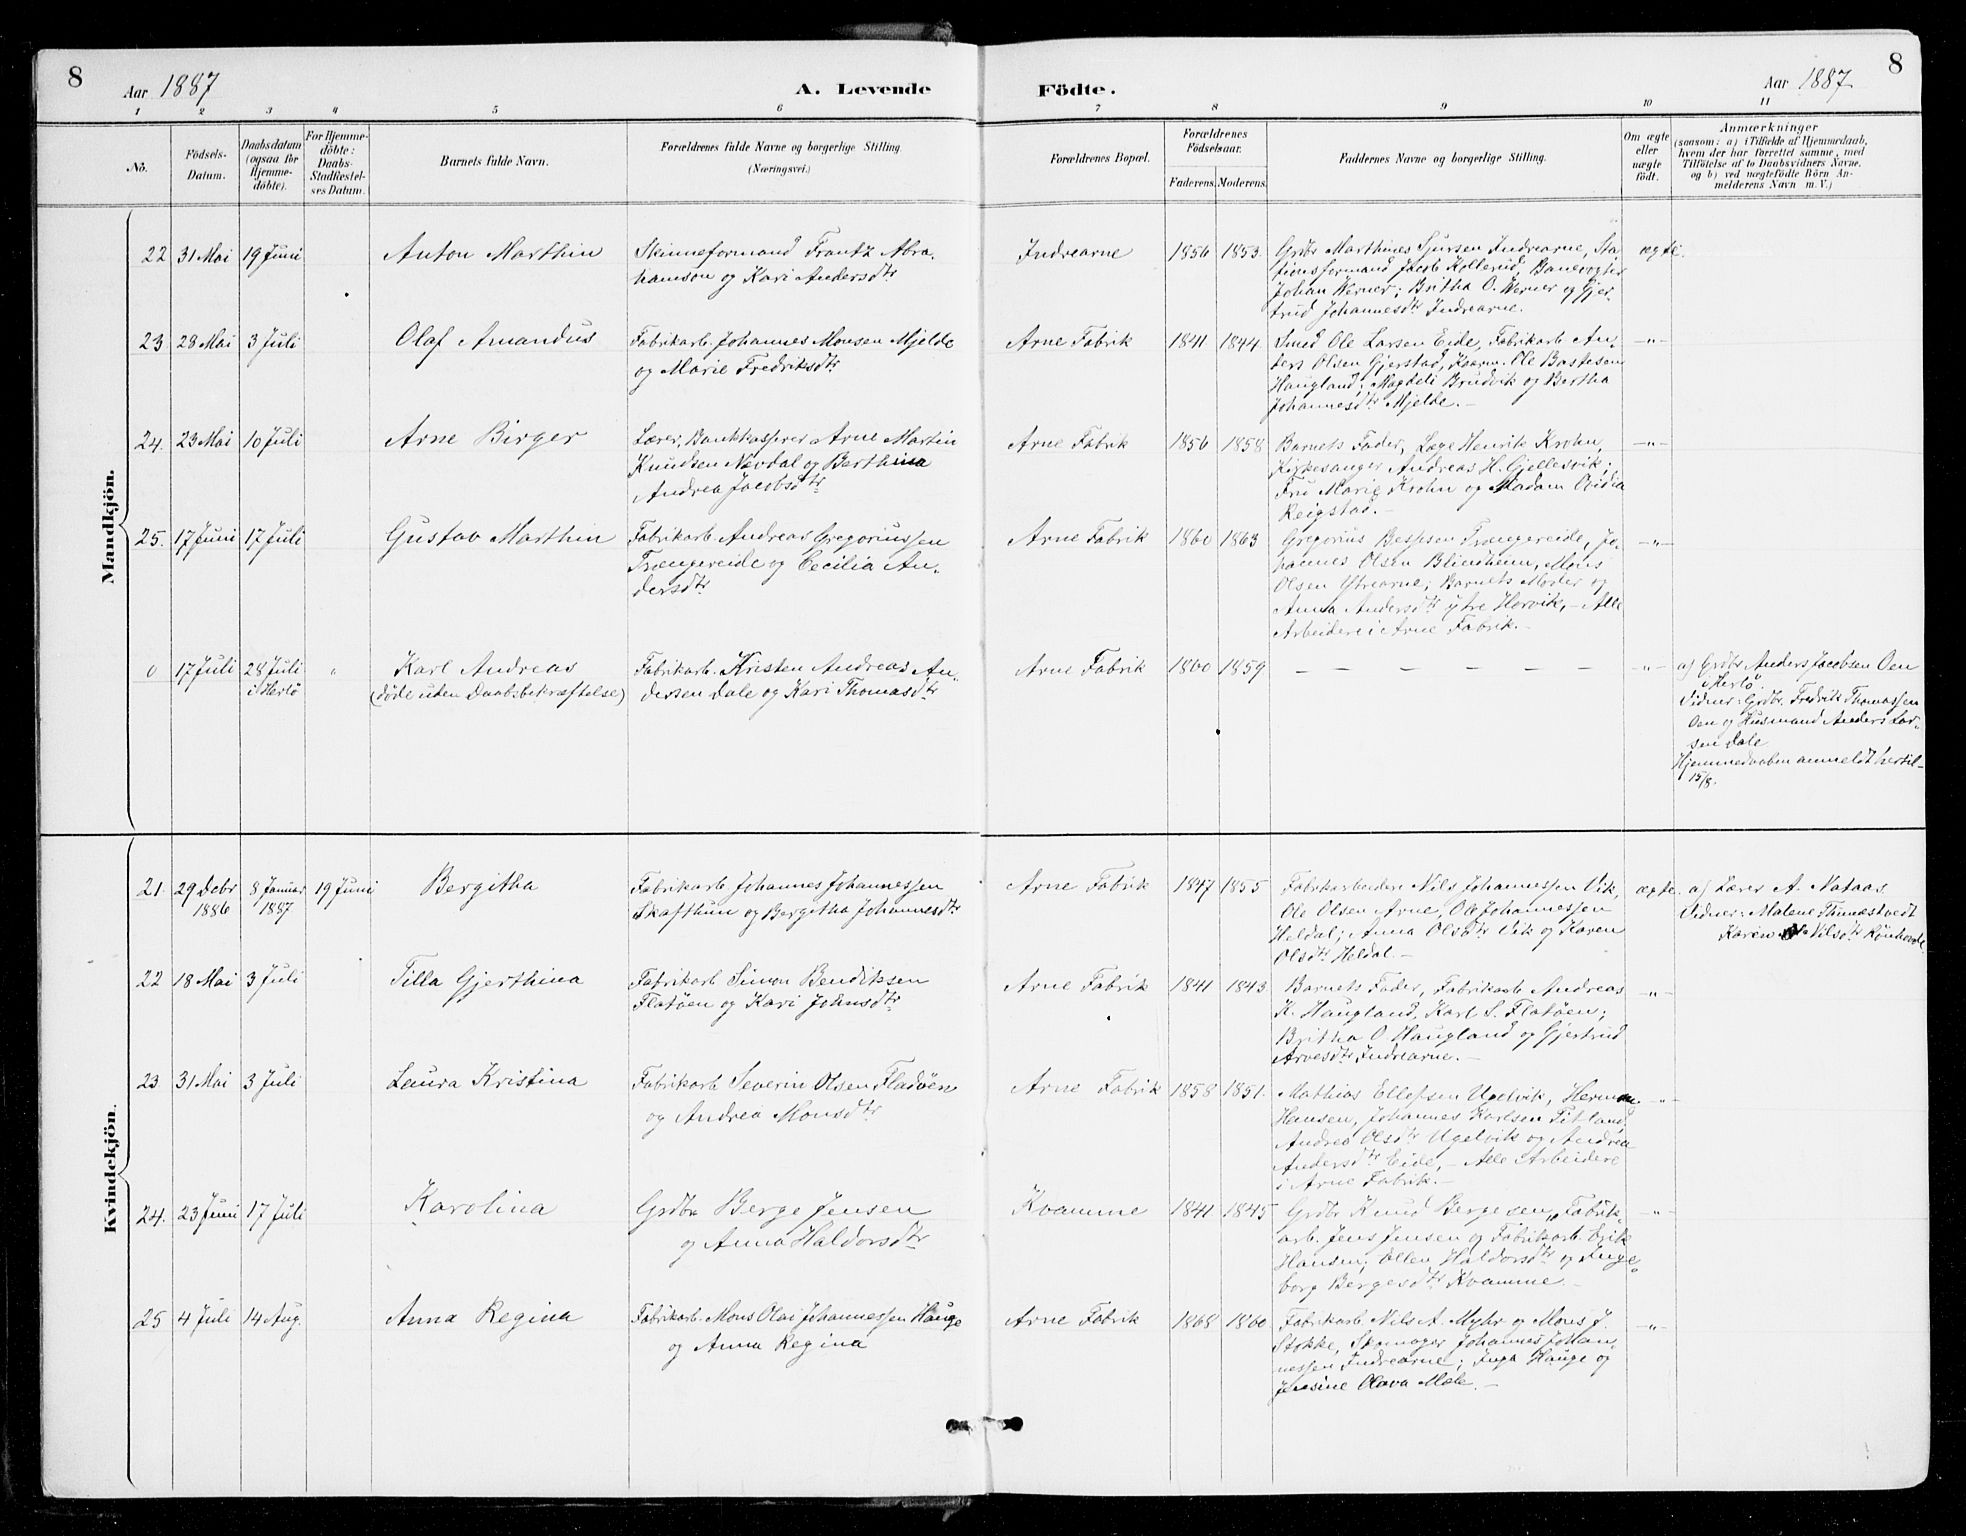 8
Aar 1887
A. Levende
Födte.
Aar 1887
8
1 2 3 4 5 6 7 8 9 10 11
No.
Födsels-
Datum.
Daabsdatum
(ogsaa for
Hjemme-
döbte).
For Hjemme-
döbte:
Daabs-
Stadfæstel-
ses Datum.
Barnets fulde Navn.
Forældrenes fulde Navne og borgerlige Stilling.
(Næringsvei.)
Forældrenes Bopæl.
Forældrenes
Födselsaar.
Faderens. Moderens.
Faddernes Navne og borgerlige Stilling.
Om ægte
eller
uægte
födt.
Anmærkninger
(saasom: a) i Tilfælde af Hjemmedaab,
hvem der har forrettet samme, med
Tilföielse af to Daabsvidners Navne.
og b) ved uægtefödte Börn An-
melderens Navn m. V.)
Mandkjön.
22 31 Mai 19 Juni Anton Marthin
Skinneformand Frantz Abra-
hamson og Kari Andersdtr
Indrearne 1856 1853
Grdbr Marthines Sjursen Indrearne, Sta-
tionsformand Jacob Kollerud, Banevogter
Johan Werner; Britha O. Werner og Gjer-
trud Johannesdtr Indrearne.
ægte.
23 28 Mai 3 Juli Olaf Amandus
Fabrikarb. Johannes Monsen Mjelde
og Marie Fredriksdtr
Arne Fabrik 1841 1844
Smed Ole Larsen Eide, Fabrikarb An-
ders Olsen Gjerstad, Ole Bastesen
Haugland; Magdeli Brudvik og Bertha
Johannesdtr Mjelde. -
-"-
24. 23 Mai 10 Juli Arne Birger
Lærer, Bankkasserer Arne Martin
Knudsen Navdal og Berthina
Andrea Jacobsdtr
Arne Fabrik 1856 1858
Barnets Fader, Læge Henrik Krohn,
Kirkesanger Andreas H. Gjellesvik;
Fru Marie Krohn og Madam Ovidia
Reigstad. -
-"-
25. 17 Juni 17 Juli Gustav Marthin
Fabrikarb. Andreas Gregoriussen
Trængereide og Cecilia An-
dersdtr
Arne Fabrik 1860 1863
Gregorius Bessesen Trængereide, Jo-
hannes Olsen Blindheim, Mons
Olsen Ytrearne; Barnets Moder og
Anna Andersdtr ytre Horvik, - Alle
Arbeidere i Arne Fabrik. -
-"-
0 17 Juli 28 Juli
i Herlø
"
Karl Andreas
(døde uden Daabsbekræftelse)
Fabrikarb. Kristen Andreas An-
dersen Dale og Kari Thomasdtr
Arne Fabrik 1860 1859
- - - - - -
-"-
a) Grdbr Anders Jacobsen Oen
i Herlø.
Vidner: Grdbr. Fredrik Thomassen
Oen og Husmand Anders Lar-
sen Dale
Hjemmedaaben anmeldt hertil
15/8.
Kvindekjön.
21. 29 Debr
1886
8 Januar
1887
19 Juni Bergitha
Fabrikarb Johannes Johannessen
Skafthun og Bergitha Johannesdtr
Arne Fabrik 1847 1855
Fabrikarbeidere Nils Johannessen Vik,
Ole Olsen Arne, Ole Johannessen
Heldal; Anna Olsdtr Vik og Karen
Olsdtr Heldal. -
ægte.
a) Lærer A. Nataas
Vidner: Malene Thunæstvedt
Karen Nilsdtr Rønhovde
22 18 Mai 3 Juli Tilla Gjerthina
Fabrikarb Simon Bendiksen
Flatøen og Kari Johnsdtr
Arne Fabrik 1841 1843
Barnets Fader, Fabrikarb Andreas
K. Haugland, Karl S. Flatøen;
Britha O Haugland og Gjertrud
Arvesdtr Indrearne. -
-"-
23 31 Mai 3 Juli Laura Kristina
Fabrikarb Severin Olsen Fladøen
og Andrea Monsdtr
Arne Fabrik 1858 1851.
Mathias Ellefsen Ugelvik, Herman
Hansen, Johannes Karlsen Titland,
Andrea Olsdtr Ugelvik og Andrea
Andersdtr Eide, - Alle Arbeidere
i Arne Fabrik. -
-"-
24. 23 Juni 17 Juli Karolina
Grdbr Berge Jensen
og Anna Haldorsdtr
Kvamme 1841 1845
Grdbr Knud Bergesen, Fabrik-
arb. Jens Jensen og Fabrikarb. Erik
Hansen; Ellen Haldorsdtr og Inge-
borg Bergesdtr Kvamme -
-"-
25 4 Juli 14 Aug. Anna Regina
Fabrikarb. Mons Olai Johannessen Hauge
og Anna Regina
Arne Fabrik 1868 1860
Fabrikarb Nils A. Myhr og Mons J.
Stokke, Skomager Johannes Johan-
nessen Indrearne; Inga Hauge og
Olava Mæle. -
-"-